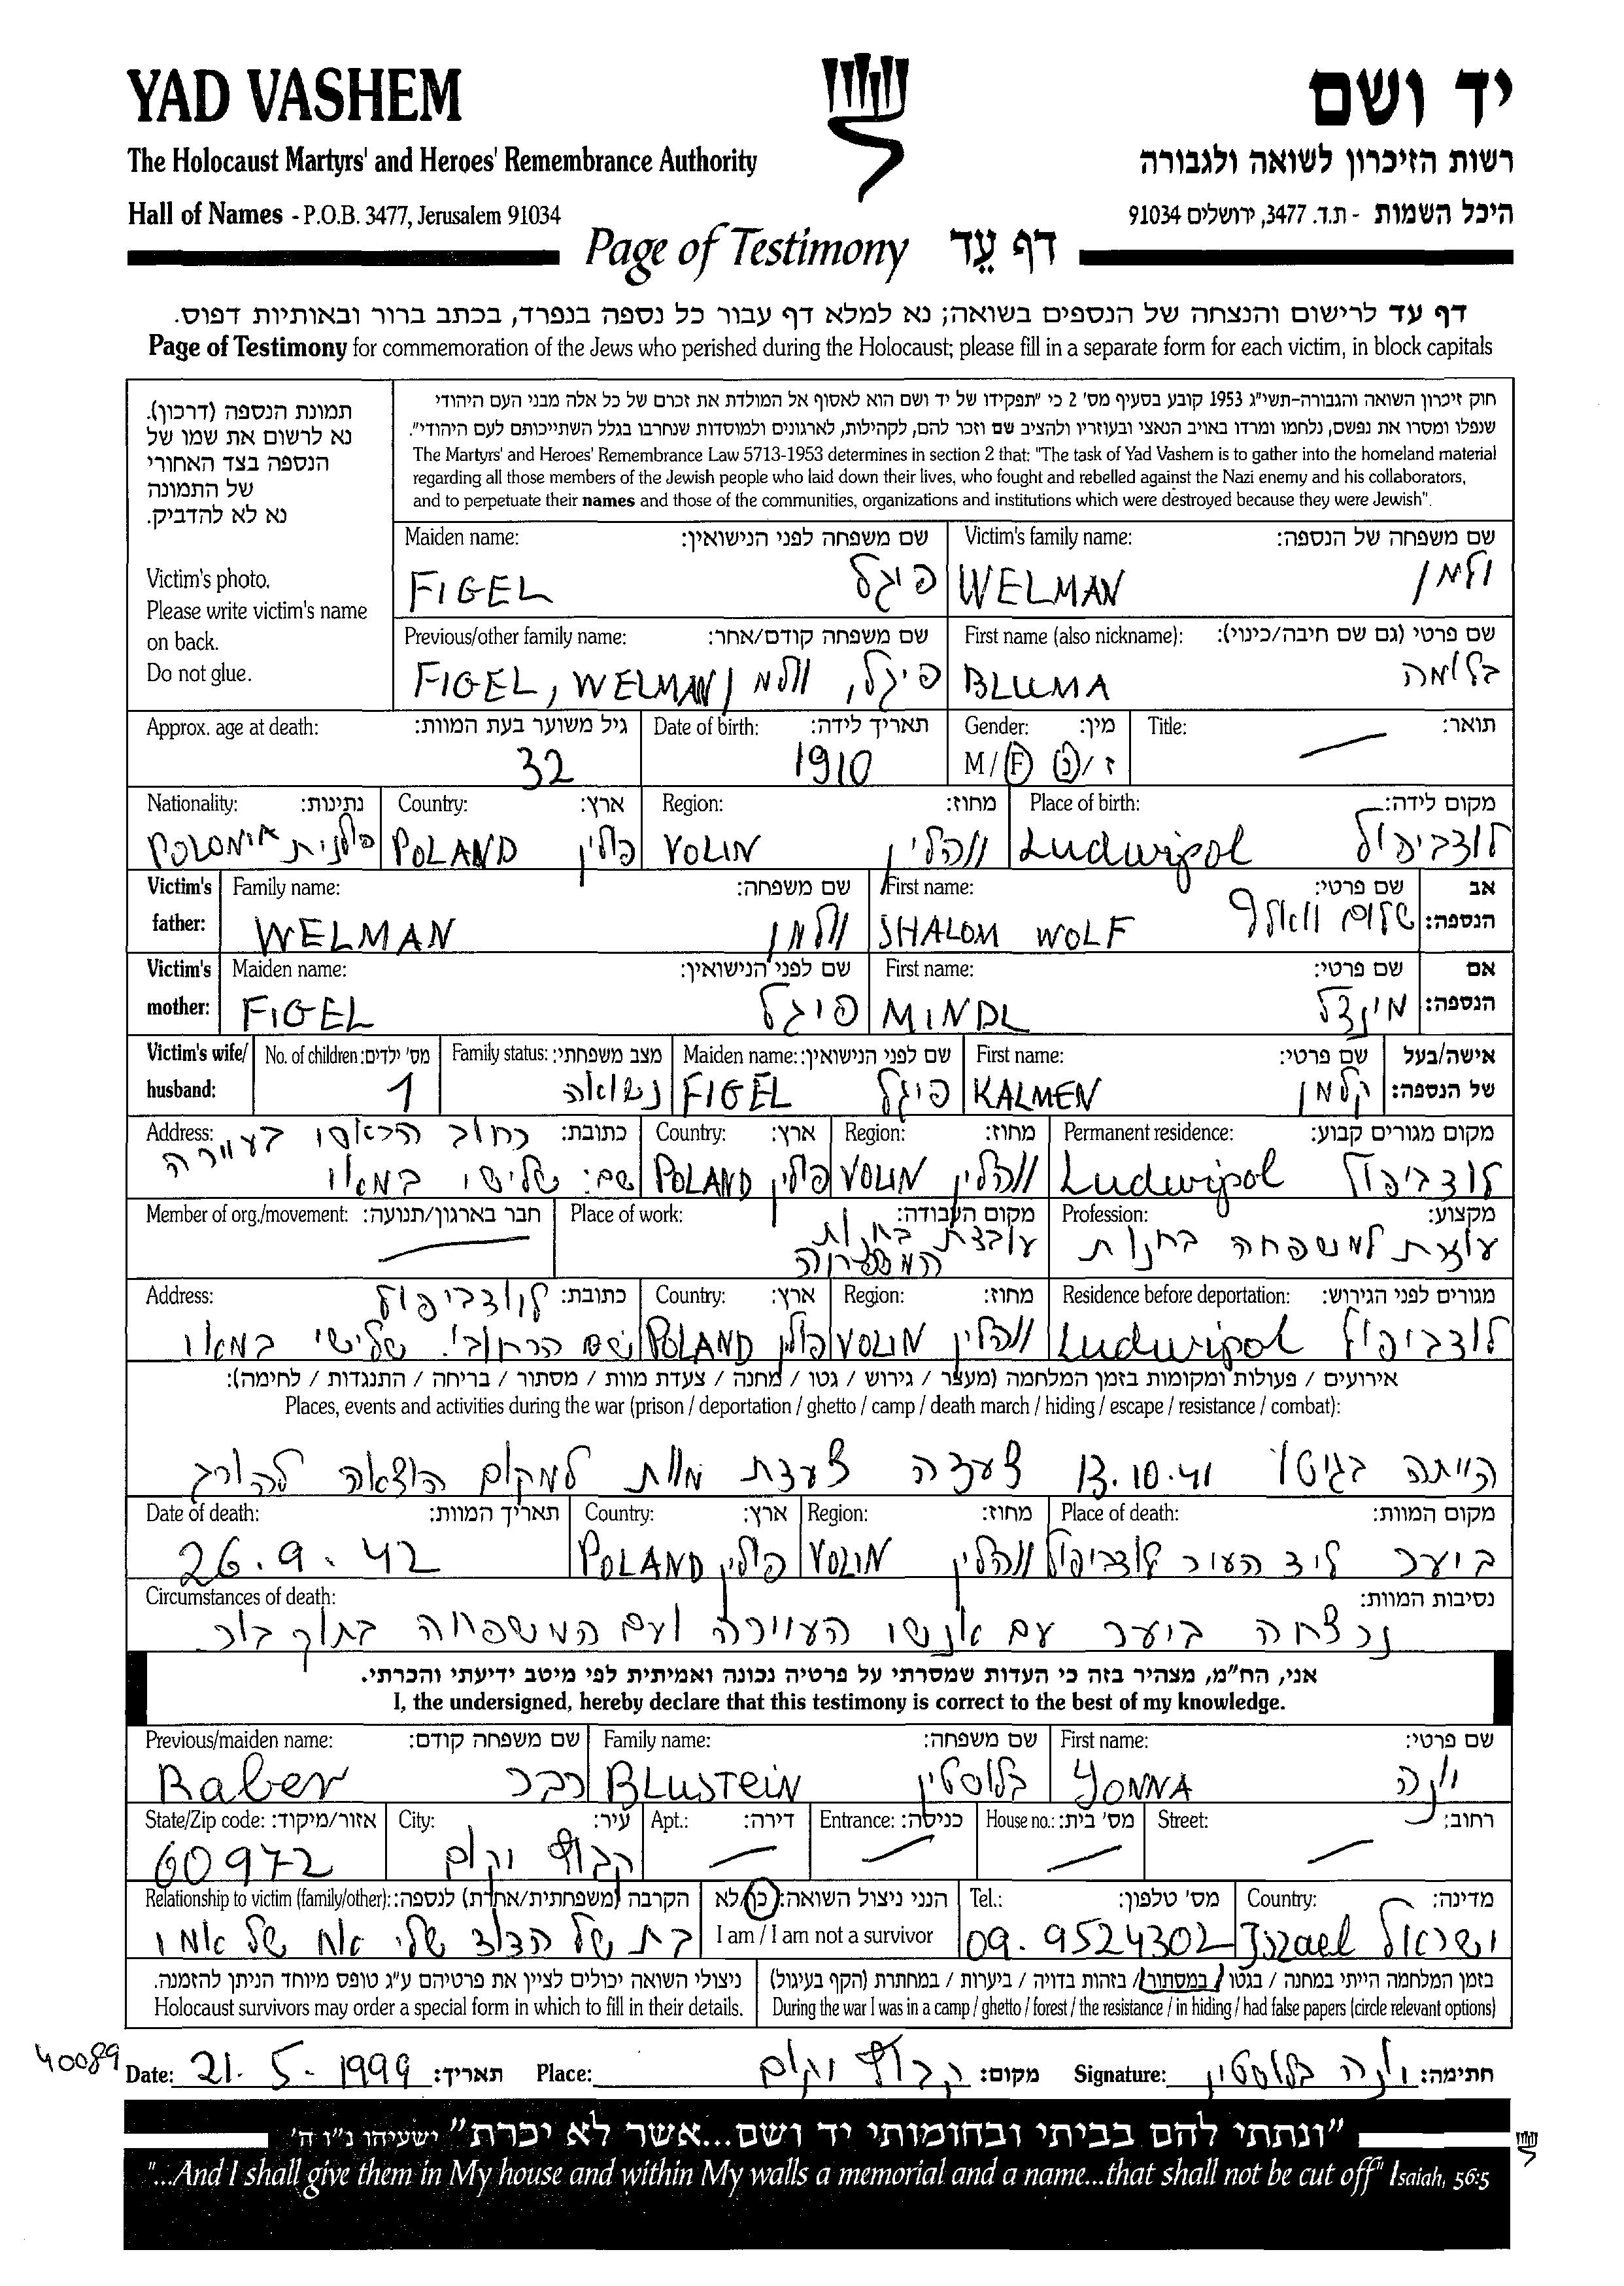 YAD VASHEM
יד ושם
The Holocaust Martyrs' and Heroes' Remembrance Authority
רשות הזיכרון לשואה ולגבורה
Hall of Names - P.O.B. 3477, Jerusalem 91034
היכל השמות - ת.ד. 3477, ירושלים 91034
Page of Testimony דף עֵד
דף עד לרישום והנצחה של הנספים בשואה; נא למלא דף עבור כל נספה בנפרד, בכתב ברור ובאותיות דפוס.
Page of Testimony for commemoration of the Jews who perished during the Holocaust; please fill in a separate form for each victim, in block capitals
תמונת הנספה (דרכון).
נא לרשום את שמו של
הנספה בצד האחורי
של התמונה
נא לא להדביק.
Victim's photo.
Please write victim's name
on back.
Do not glue.
חוק זיכרון השואה והגבורה-תשי"ג 1953 קובע בסעיף מס' 2 כי "תפקידו של יד ושם הוא לאסוף אל המולדת את זכרם של כל אלה מבני העם היהודי
שנפלו ומסרו את נפשם, נלחמו ומרדו באויב הנאצי ובעוזריו ולהציב שם וזכר להם, לקהילות, לארגונים ולמוסדות שנחרבו בגלל השתייכותם לעם היהודי".
The Martyrs' and Heroes' Remembrance Law 5713-1953 determines in section 2 that: "The task of Yad Vashem is to gather into the homeland material
regarding all those members of the Jewish people who laid down their lives, who fought and rebelled against the Nazi enemy and his collaborators,
and to perpetuate their names and those of the communities, organizations and institutions which were destroyed because they were Jewish".
Maiden name: שם משפחה לפני הנישואין:
FIGEL פיגל
Victim's family name: שם משפחה של הנספה:
WELMAN ולמן
Previous/other family name: שם משפחה קודם/אחר:
FIGEL, WELMAN פיגל, ולמן
First name (also nickname): שם פרטי (גם שם חיבה/כינוי):
BLUMA בלומה
Approx. age at death: גיל משוער בעת המוות:
32
Date of birth: תאריך לידה:
1910
Gender: מין:
M / F נ / ז
Title: תואר:
Nationality: נתינות:
פולנית
Country: ארץ:
POLAND פולין
Region: מחוז:
VOLIN ווהלין
Place of birth: מקום לידה:
Ludwipol לודביפול
Victim's father: אב הנספה:
Family name: שם משפחה:
WELMAN ולמן
First name: שם פרטי:
SHALOM WOLF שלום וואלף
Victim's mother: אם הנספה:
Maiden name: שם לפני הנישואין:
FIGEL פיגל
First name: שם פרטי:
MINDL מינדל
Victim's wife/ husband: אישה/בעל של הנספה:
No. of children: מס' ילדים:
1
Family status: מצב משפחתי:
נשואה
Maiden name: שם לפני הנישואין:
FIGEL פיגל
First name: שם פרטי:
KALMEN קלמן
Address: כתובת:
רחוב הראשי בעיירה
שם: שלישי במאי
Country: ארץ:
POLAND פולין
Region: מחוז:
VOLIN ווהלין
Permanent residence: מקום מגורים קבוע:
Ludwipol לודביפול
Member of org./movement: חבר בארגון/תנועה:
Place of work: מקום העבודה:
עובדת בחנות
Profession: מקצוע:
עוזרת למשפחה בחנות
Address: כתובת:
לודביפול
שם הרחוב: שלישי במאי
Country: ארץ:
POLAND פולין
Region: מחוז:
VOLIN ווהלין
Residence before deportation: מגורים לפני הגירוש:
Ludwipol לודביפול
אירועים / פעולות ומקומות בזמן המלחמה (מעצר / גירוש / גטו / מחנה / צעדת מוות / מסתור / בריחה / התנגדות / לחימה):
Places, events and activities during the war (prison / deportation / ghetto / camp / death march / hiding / escape / resistance / combat):
הייתה בגיטו 13.10.41 צעדה צעדת מוות למקום הוצאה להורג
Date of death: תאריך המוות:
26.9.42
Country: ארץ:
POLAND פולין
Region: מחוז:
VOLIN ווהלין
Place of death: מקום המוות:
ביער ליד העיר לודביפול
Circumstances of death: נסיבות המוות:
נרצחה ביער עם אנשי העיירה ועם המשפחה בתוך בור.
אני, הח"מ, מצהיר בזה כי העדות שמסרתי על פרטיה נכונה ואמיתית לפי מיטב ידיעתי והכרתי.
I, the undersigned, hereby declare that this testimony is correct to the best of my knowledge.
Previous/maiden name: שם משפחה קודם:
Raber רבר
Family name: שם משפחה:
BLUSTEIN בלוסטין
First name: שם פרטי:
YONNA יונה
State/Zip code: אזור/מיקוד:
60972
City: עיר:
קבוץ יקום
Apt.: דירה:
Entrance: כניסה:
House no.: מס' בית:
Street: רחוב:
Relationship to victim (family/other): הקרבה (משפחתית/אחרת) לנספה:
בת של הדוד שלי אח של אמי
הנני ניצול השואה: כן/לא
I am / I am not a survivor
Tel.: מס' טלפון:
09.9524302
Country: מדינה:
Israel ישראל
ניצולי השואה יכולים לציין את פרטיהם ע"ג טופס מיוחד הניתן להזמנה.
Holocaust survivors may order a special form in which to fill in their details.
בזמן המלחמה הייתי במחנה / בגטו / במסתור / בזהות בדויה / ביערות / במחתרת (הקף בעיגול)
During the war I was in a camp / ghetto / forest / the resistance / in hiding / had false papers (circle relevant options)
40089
Date: 21.5.1999 תאריך:
Place: קבוץ יקום מקום:
Signature: יונה בלוסטין חתימה:
"ונתתי להם בביתי ובחומותי יד ושם...אשר לא יכרת" ישעיהו נ"ו ה'
"...And I shall give them in My house and within My walls a memorial and a name...that shall not be cut off" Isaiah, 56:5